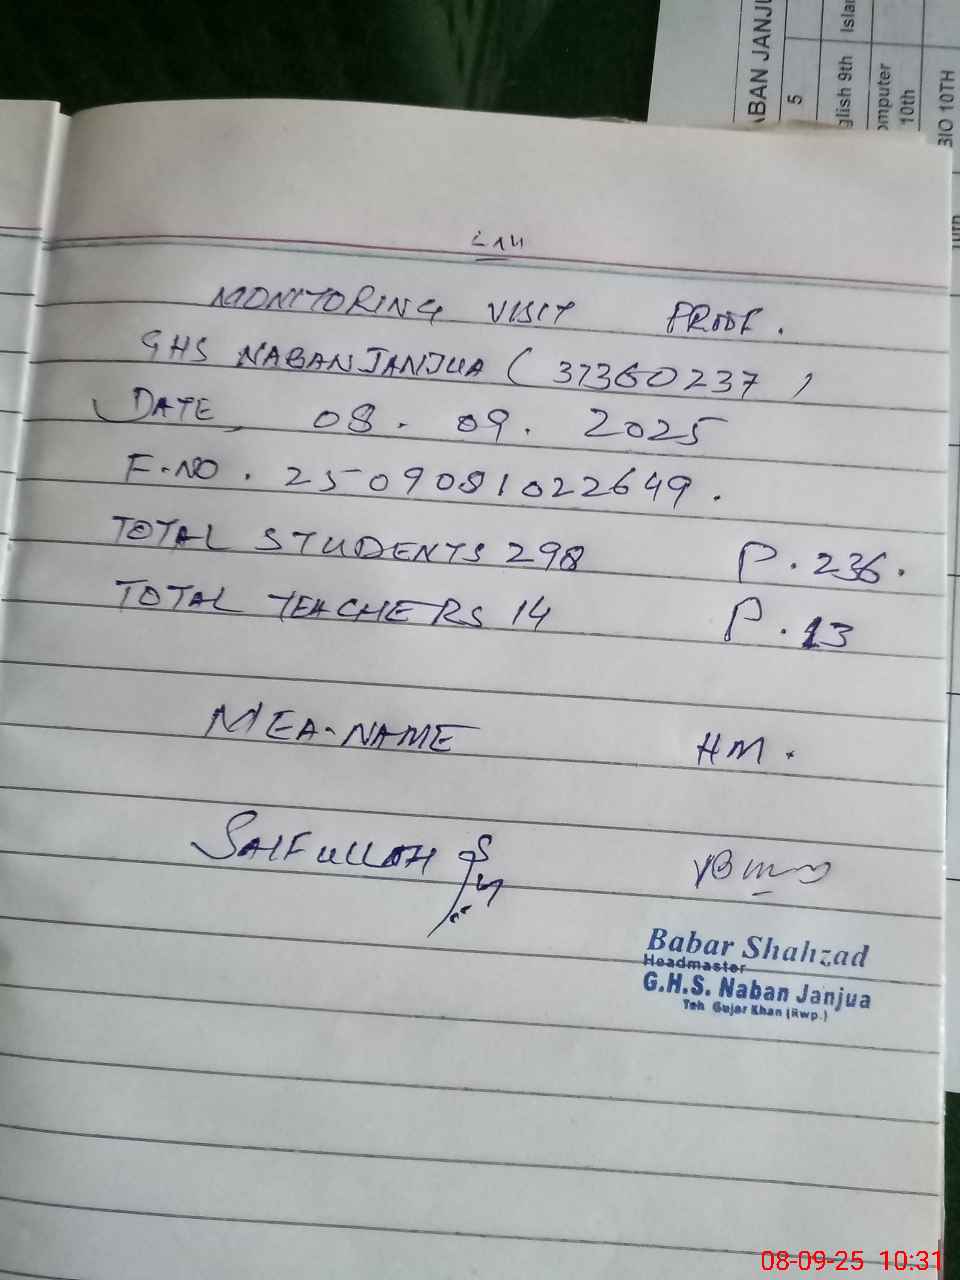 MONITORING VISIT PROOF.
GHS NABAN JANJUA (37360237)
DATE, 08. 09. 2025
F.NO. 2509081022649.
TOTAL STUDENTS 298 P. 236.
TOTAL TEACHERS 14 P. 13
MEA-NAME HM.
SAIFULLAH
Babar Shahzad
Headmaster
G.H.S. Naban Janjua
Teh Gujar Khan (Rwp.)
5
glish 9th
10th
BIO 10TH
08-09-25 10:31